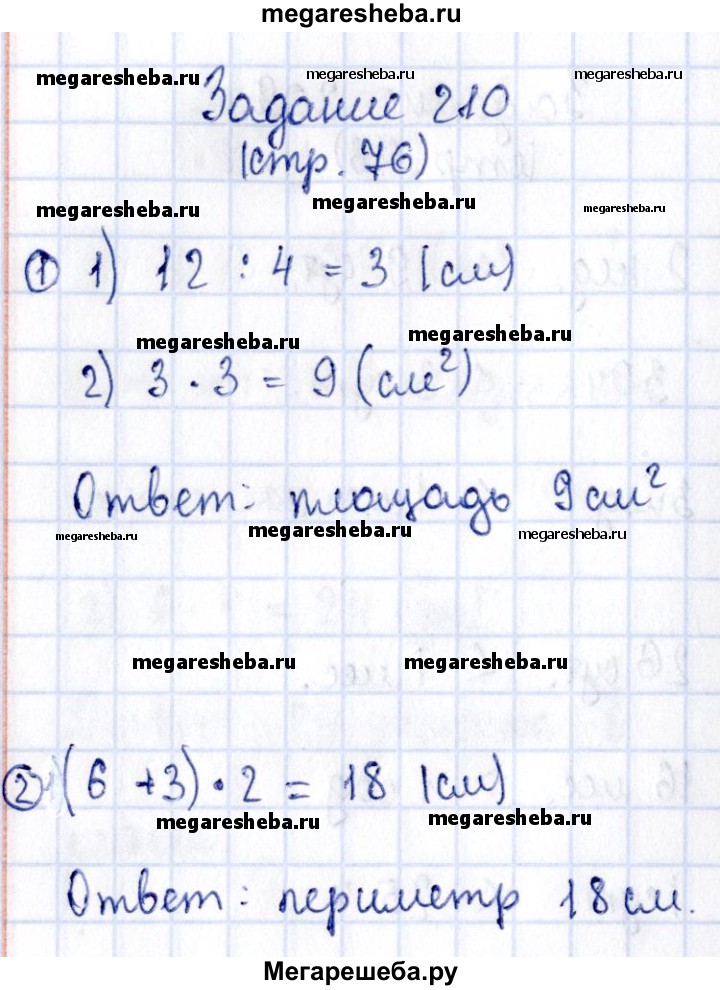 megaresheba.ru
megaresheba.ru megaresheba.ru megaresheba.ru
Задание 210
(стр. 76)
megaresheba.ru megaresheba.ru megaresheba.ru
① 1) 12 : 4 = 3 (см)
megaresheba.ru megaresheba.ru
2) 3 · 3 = 9 (см²)
Ответ: площадь 9 см²
megaresheba.ru megaresheba.ru megaresheba.ru
megaresheba.ru megaresheba.ru
② (6 + 3) · 2 = 18 (см)
megaresheba.ru megaresheba.ru
Ответ: периметр 18 см.
Мегарешеба.ру